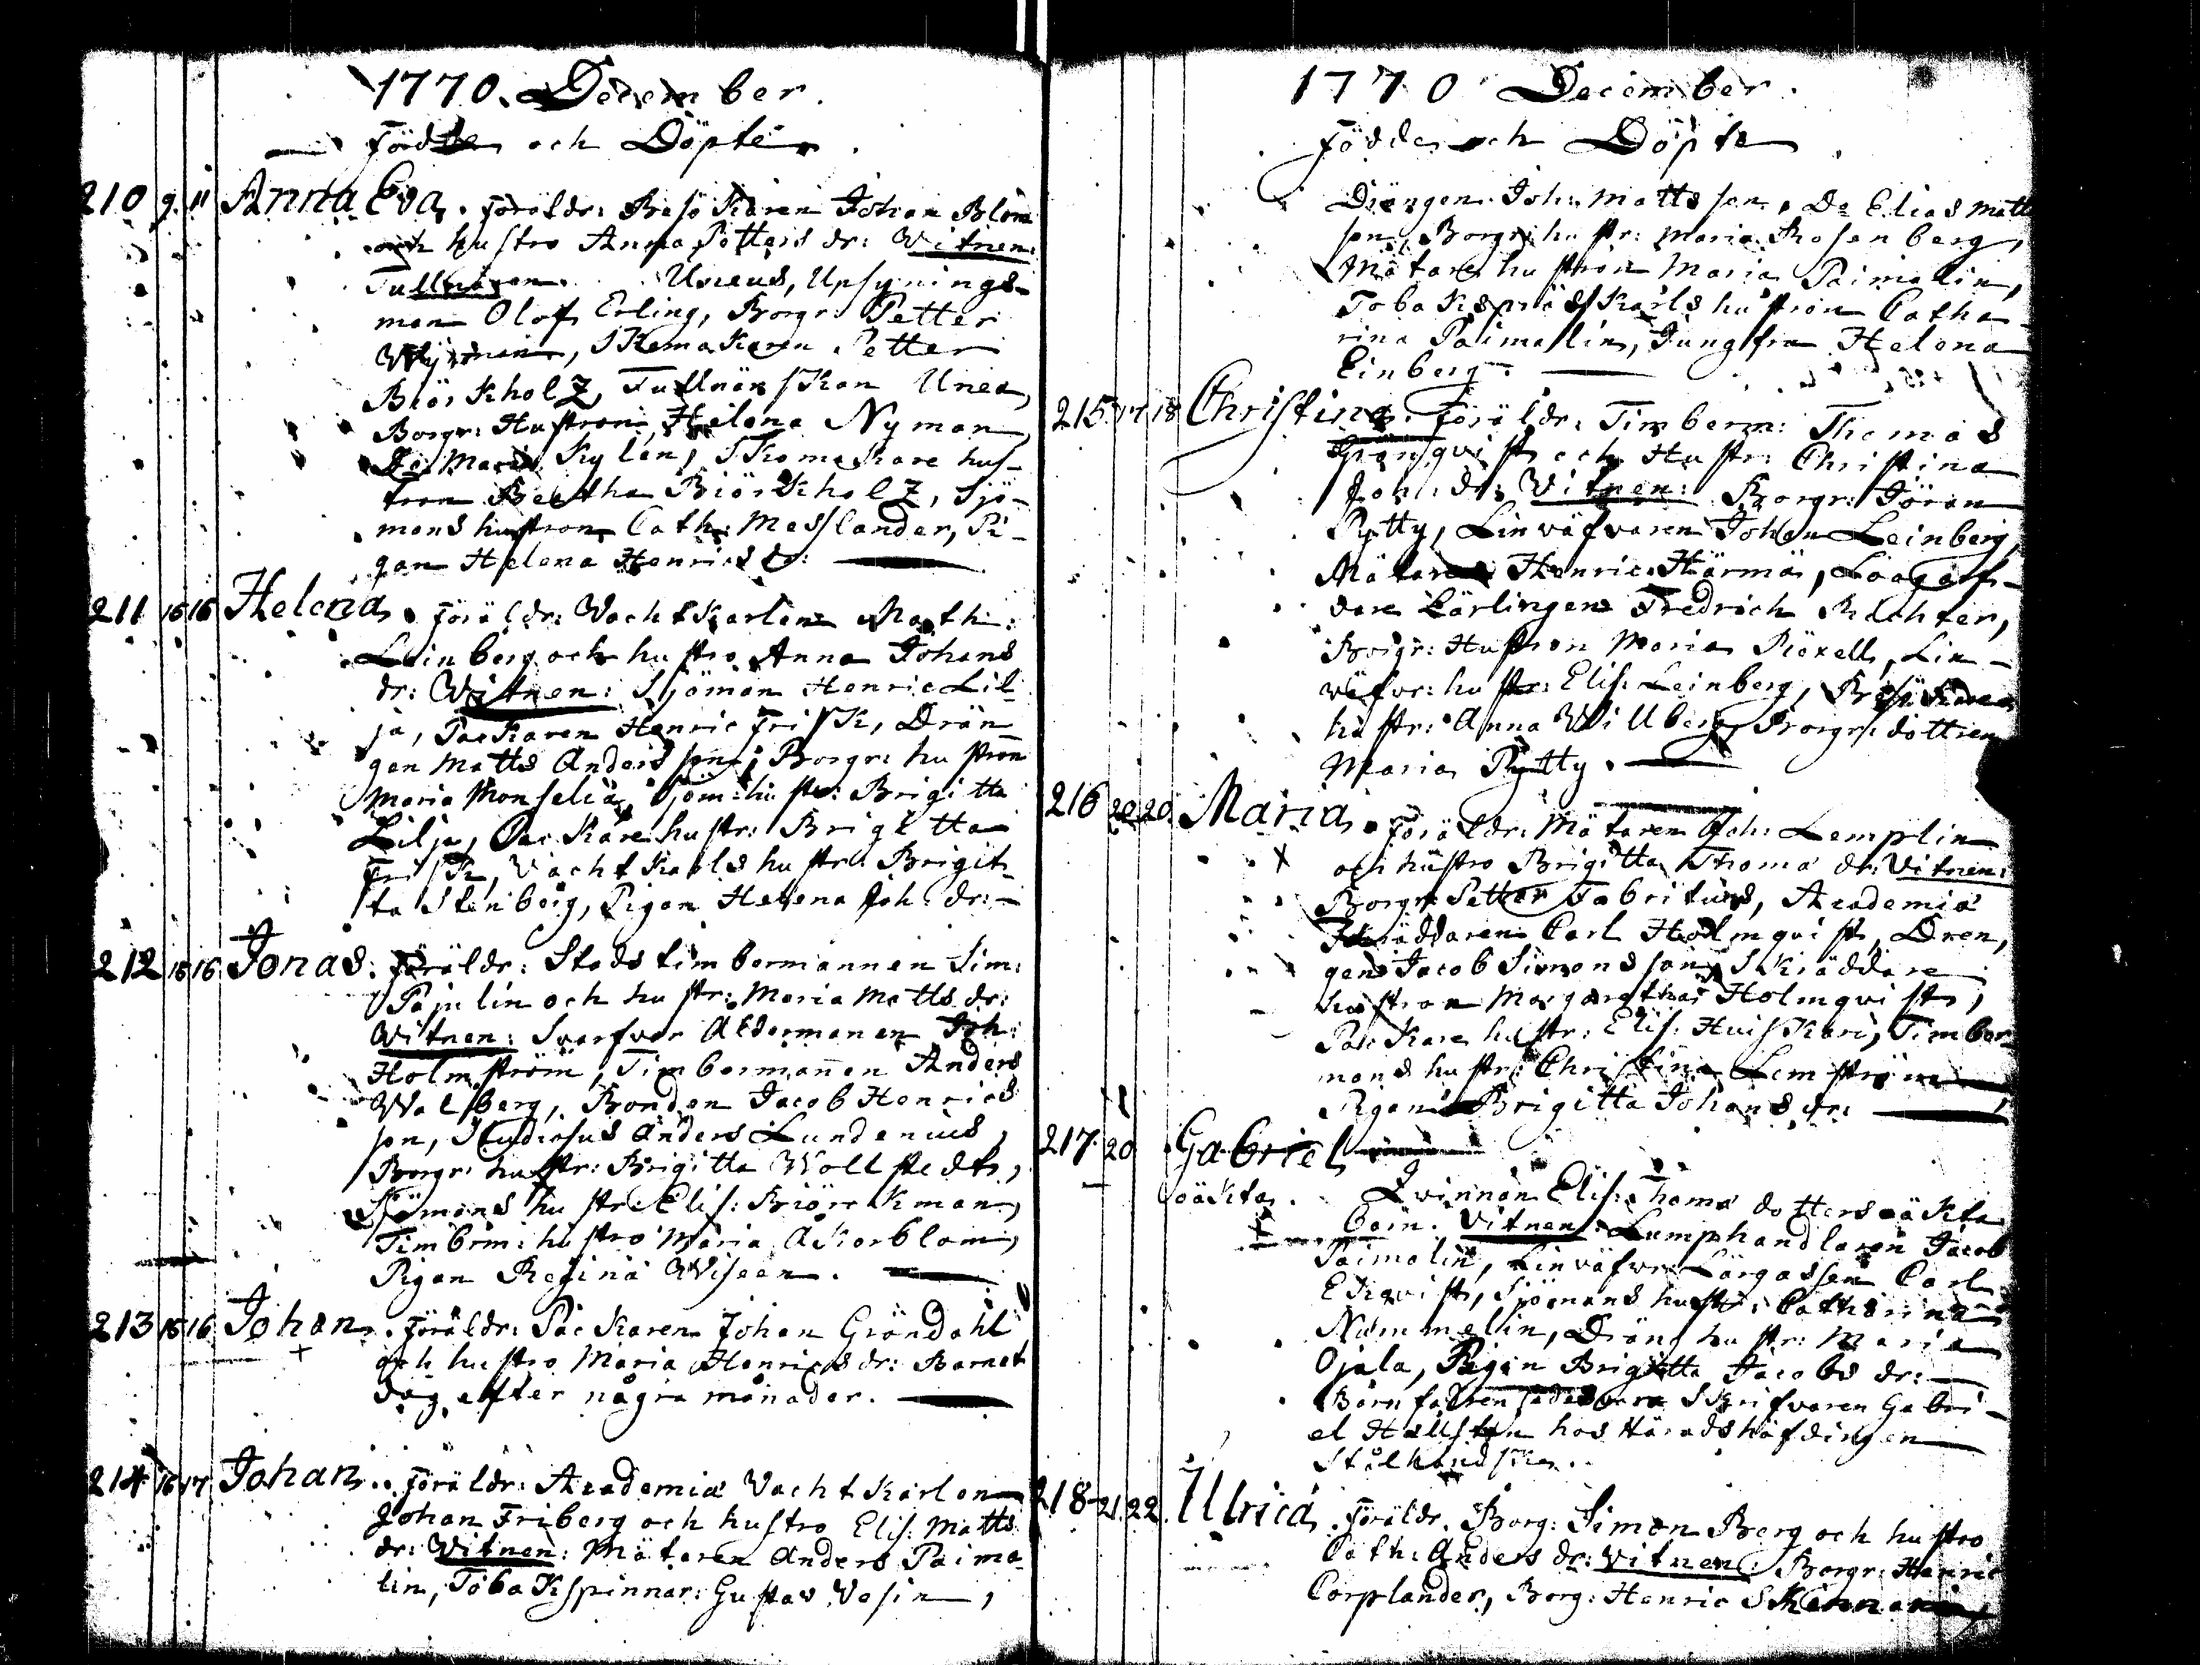 1770. December.
Födde och Döpte
210 9. 11 Anna Eva. Föräldr: Besökaren Johan Blom
och hustro Anna Petters dr: Witnen:
Tullnären Uneus, Upsynings-
man Olof Erling, Borgr: Petter
Wijnman, Skomakaren Petter
Biörkholz, Tullnärskan Unea,
Borgr: Hustron Helena Nyman,
Do Maria Kylen, Skomakare hus-
tron Beatha Biörkholz, Sjö-
mans hustron Cath: Messlander, Pi-
gan Helena Henrics dr:
211 15 16 Helena. Föräldr: Vachtkarlen Math:
Leinberg och hustro Anna Johans
dr: Witnen: Sjöman Henric Lil-
ja, Packaren Henric Frisk, Drän-
gen Matts Andersson, Borgr: hustron
Maria Monselia, Sjöm: hustr: Brigitta
Lilja, Packare hustr: Brigitta
Frisk, Vachtkarls hustr: Brigit-
ta Stenberg, Pigan Helena Joh: dr:
212 15 16 Jonas. Föräldr: Stads timbermannen Sim:
Pajulin och hustr: Maria Matts dr:
Witnen: Svarfvar Åldermanen Joh:
Holmström, Timbermannen Anders
Walberg, Bonden Jacob Henrics
son, Studiosus Anders Lundenius,
Borgr: hustr: Brigitta Wollstedt,
Sjömans hustr: Elis: Biörckman,
Timberm: hustro Maria Åkerblom,
Pigan Regina Wiseen.
213 15 16 Johan. Föräldr: Packaren Johan Gröndahl
och hustro Maria Henrics dr: Barnet
dog efter några månader.
214 16 17 Johan. Föräldr: Academiæ Vachtkarlen
Johan Friberg och hustro Elis: Matts
dr: Witnen: Mätaren Anders Paima
lin, Tobakspinnar: Gustav Vasin,
1770 December.
Födde och Döpte
Drängen Joh: Mattsson, Do Elias Matts
son, Borgr: hustr: Maria Rosenberg,
Mätare hustron Maria Paimalin,
hustron Catha-
rina Paimalin, Jungfru Helena
Einberg.
215 17 18 Christina. Föräldr: Timberm: Thomas
Grönqvist och Hustr: Christina
Joh: dr: Witnen: Borgr: Jöran
Pytty, Linväfvaren Johan Leinberg,
Mätaren Henric Härmä,
Lärlingen Fredrich Richter,
Borgr: Hustron Maria Röxell, Lin-
väfvr: hustr: Elis: Leinberg, Besökare
hustr: Anna Willberg, Borgr: dottren
Maria Pytty.
216 20 20 Maria. Föräldr: Mätaren Joh: Lemplin
och hustro Brigitta Thomæ dr: Vitnen:
Borgr: Petter Fabritius, Academiæ
Skräddaren Carl Holmqvist, Dren,
gen Jacob Simonsson, Skräddare
hustron Margaretha Holmqvist,
Packare hustr: Elis: Huiskari, Timber
mans hustr: Christina Lemström
Pigan Brigitta Johans dr:
217. 20 Gabriel
oäkta. Qvinnan Elis: Thomæ dotters oäkta
barn. Vitnen: Lumphandlaren Jacob
Paimolin, Linväfvr: Carl
Ekqvist, Sjömans hustr: Catharina
Nummelin, Drängs hustr: Maria
Ojala, Pigan Brigitta Jacobs dr:
Barnfadren sades vara Skrifvaren Gabri-
el Hallsten hos Häradshöfdingen
Stålhandske.
218 21. 22. Ulrica. Föräldr. Borg: Simon Berg och hustro
Cath: Anders dr: Vitnen: Borgr: Henric
Corplander, Borg: Henric